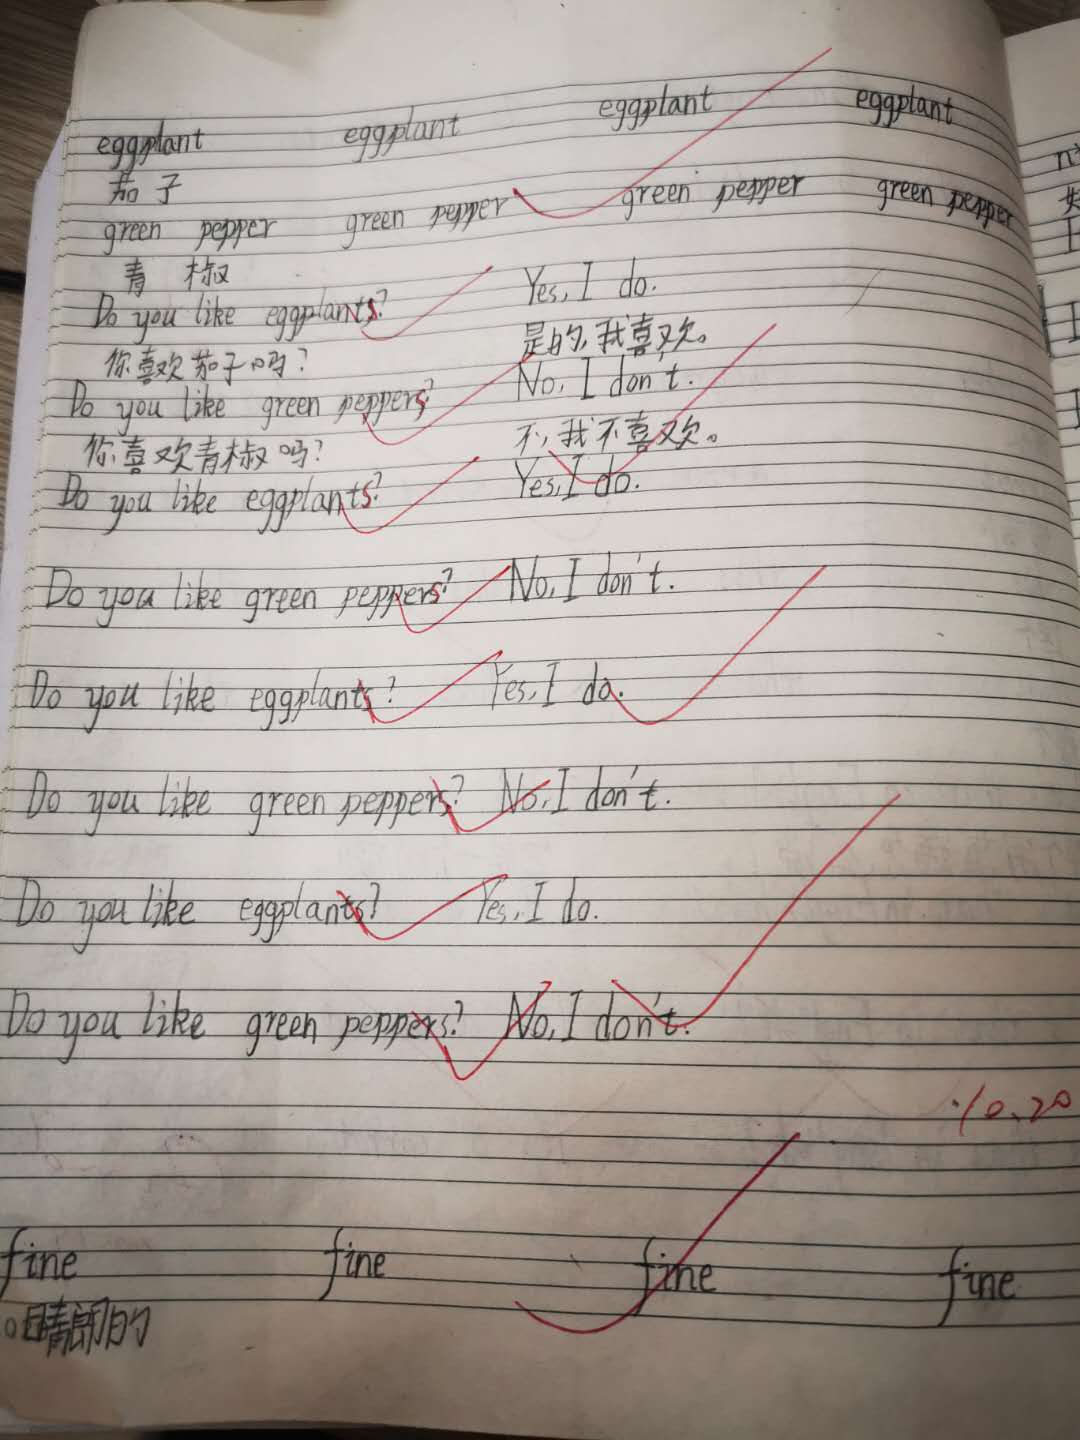 eggplant eggplant eggplant eggplant
茄子
green pepper green pepper green pepper green pepper
青椒
Do you like eggplants? Yes, I do.
你喜欢茄子吗? 是的,我喜欢。
Do you like green peppers? No, I don't.
你喜欢青椒吗? 不,我不喜欢。
Do you like eggplants? Yes, I do.
Do you like green peppers? No, I don't.
Do you like eggplants? Yes, I do.
Do you like green peppers? No, I don't.
Do you like eggplants? Yes, I do.
Do you like green peppers? No, I don't.
10.20
fine fine fine fine
晴朗的